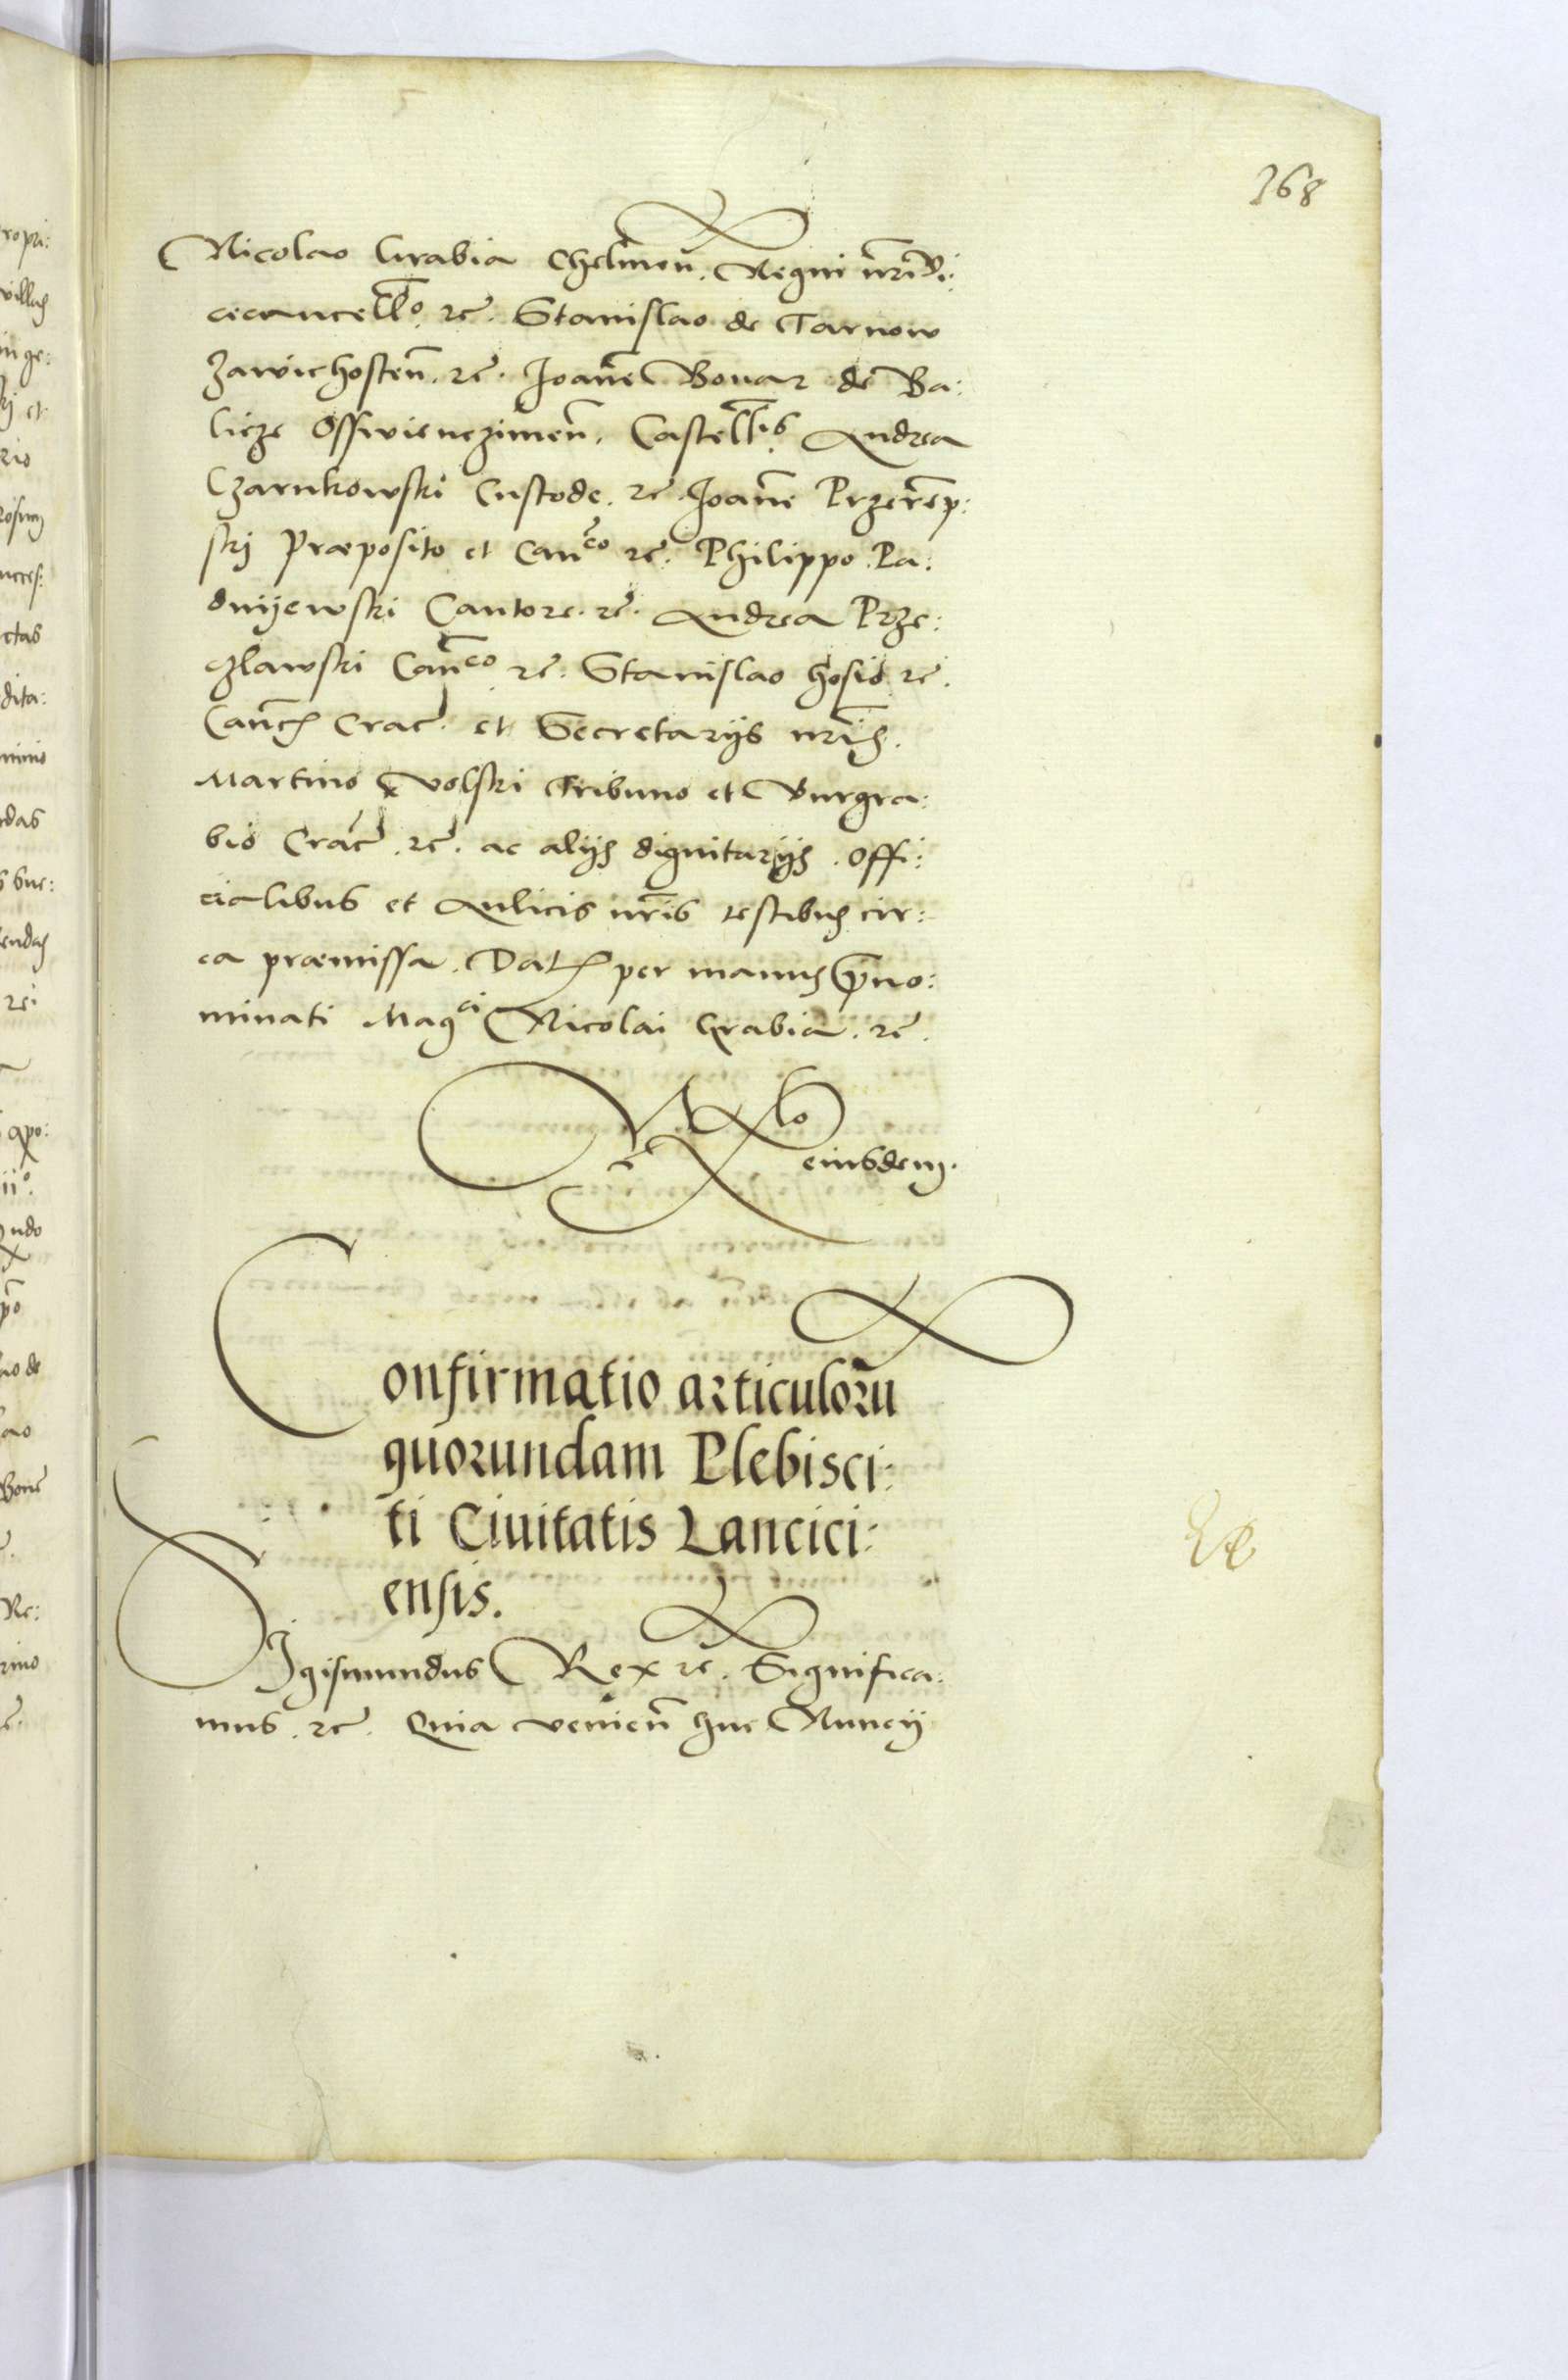 168
Nicolao Grabia Chelmen̄. Regni nr̄i Vi:
cecancell̄o. rc̄. Stanislao de Tarnow
Zawichosten̄. rc̄. Joanne Bonar de Ba:
licze Osswienczimen̄. Castell̄is Andrea
Czarnkowski Custode. rc̄. Joanne Przeremp:
ski Præposito et Can̄co rc̄. Philippo Pa:
dnijewski Cantore. rc̄. Andrea Prze:
czlawski Can̄co rc̄. Stanislao hosio rc̄.
Cancīs Crac̄. et Secretarijs nr̄is.
Martino Volski Tribuno et Burgra:
bio Crac̄. rc̄. ac alijs dignitarijs. Offi:
cialibus et Aulicis nr̄is testibus cir:
ca præmissa. Dat̄ per manus prœno:
minati Maḡci Nicolai Grabia. rc̄.
Rlo
eiusdem.
Confirmatio articulorū
quorundam Plebisci:
ti Ciuitatis Lancici:
ensis.
SIgismundus Rex rc̄. Significa:
mus. rc̄. Quia venien̄ huc Nuncij